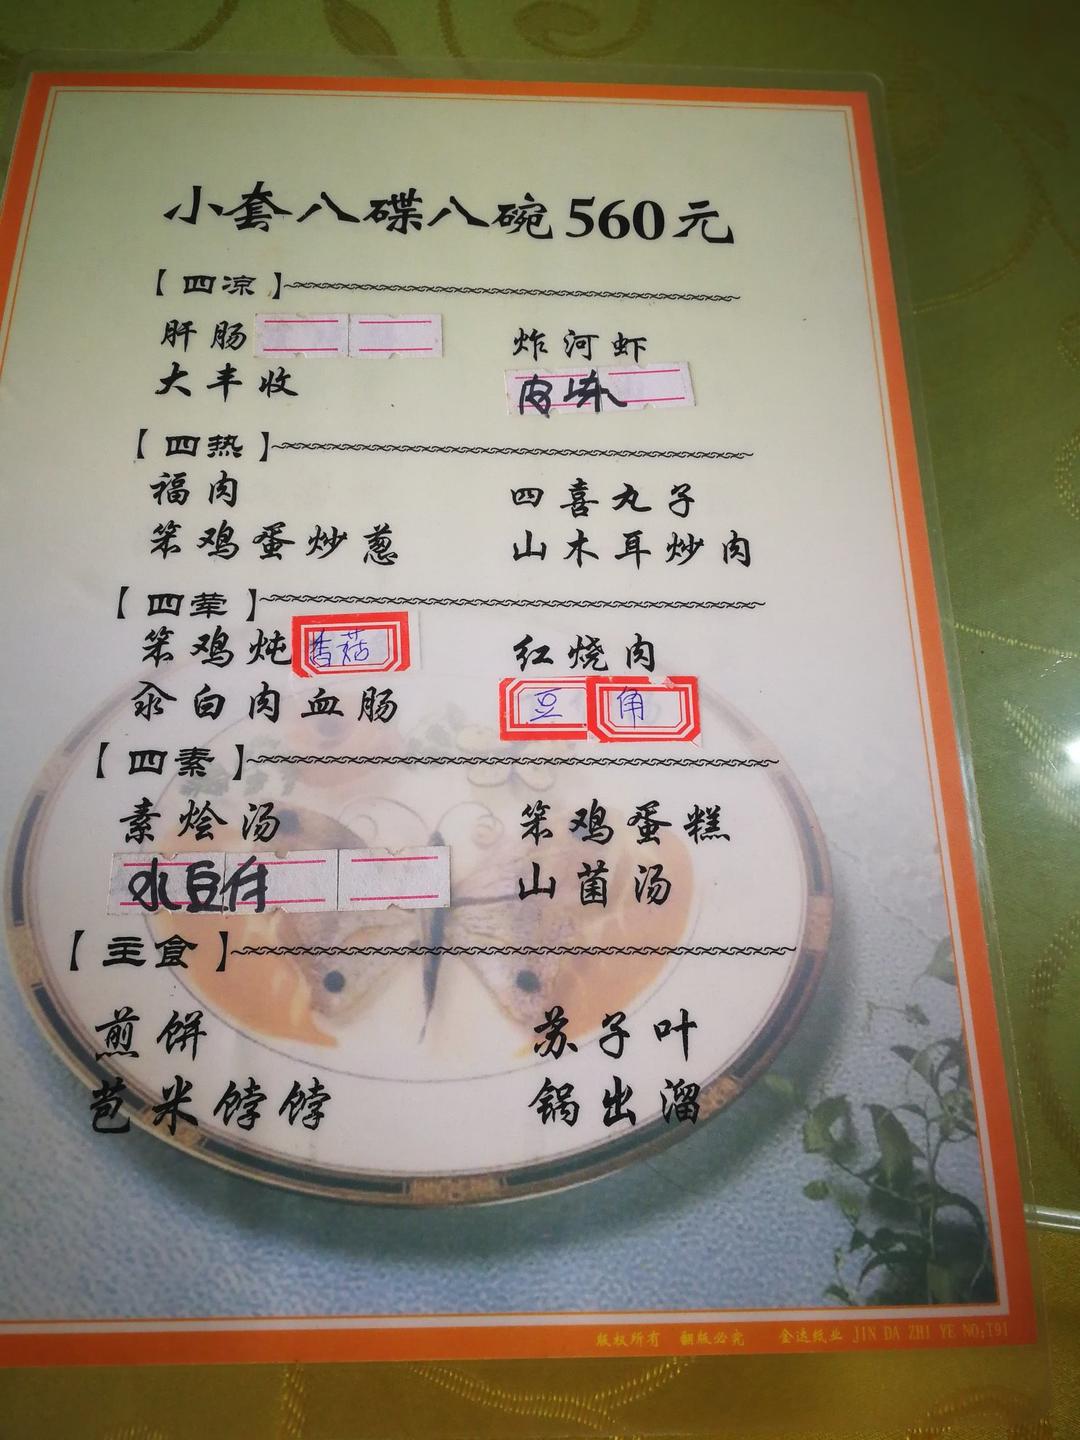 小套八碟八碗560元
【四凉】
肝肠 炸河虾
大丰收 肉冻
【四热】
福肉 四喜丸子
笨鸡蛋炒葱 山木耳炒肉
【四荤】
笨鸡炖香菇 红烧肉
汆白肉血肠 豆角
【四素】
素烩汤 笨鸡蛋糕
水豆付 山菌汤
【主食】
煎饼 苏子叶
苞米饽饽 锅出溜
版权所有 翻版必究 金达纸业 JIN DA ZHI YE NO:T91